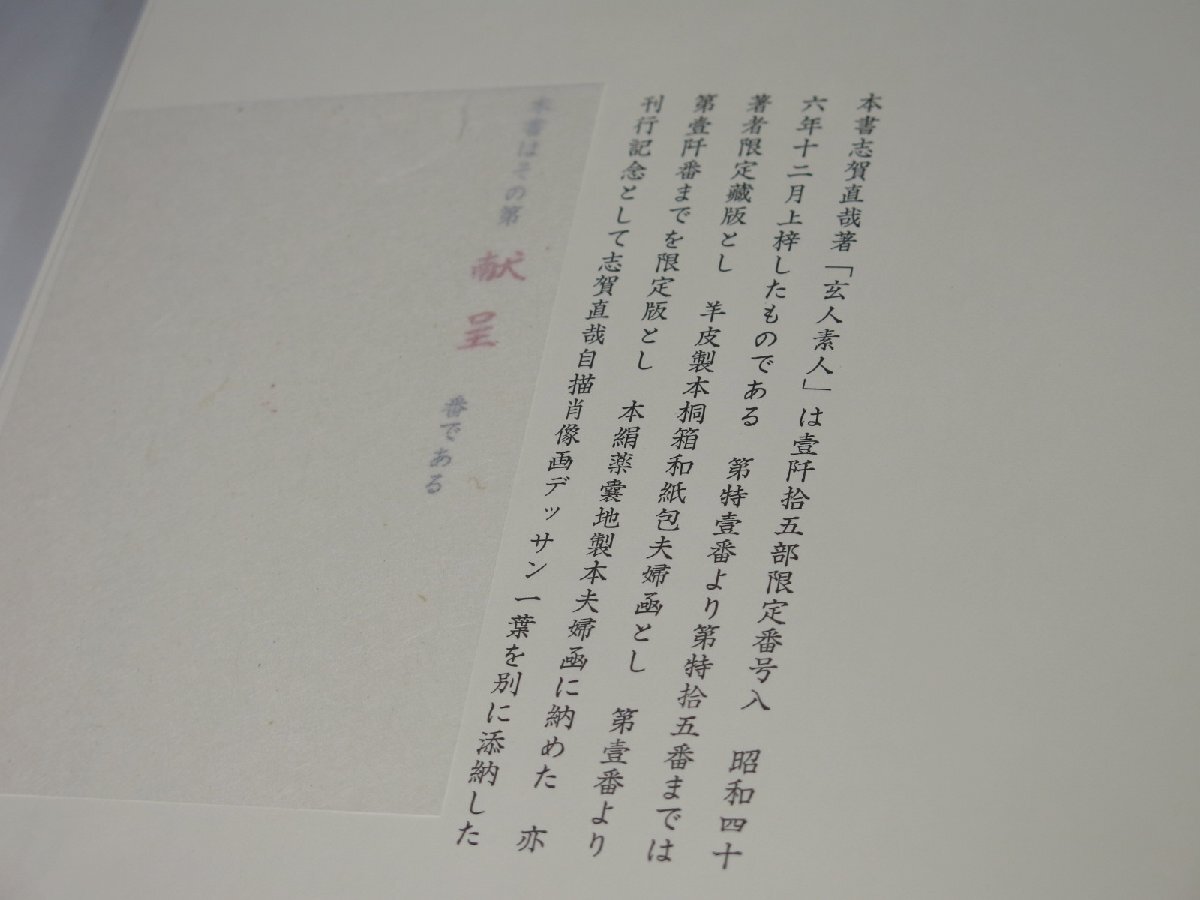 本書志賀直哉著「玄人素人」は壹阡拾五部限定番号入　昭和四十
六年十二月上梓したものである　第特壹番より第特拾五番までは
著者限定藏版とし　羊皮製本桐箱和紙包夫婦函とし　第壹番より
第壹阡番までを限定版とし　本絹薬嚢地製本夫婦函に納めた　亦
刊行記念として志賀直哉自描肖像画デッサン一葉を別に添納した
本書はその第
献呈
番である